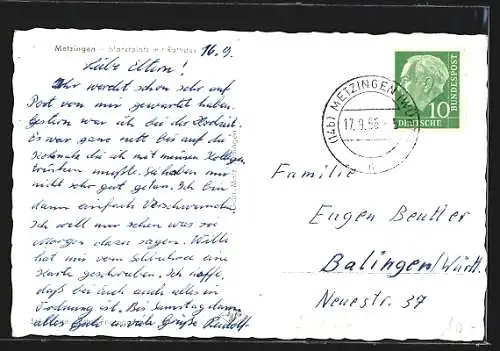 Metzingen - Marktplatz mit Rathaus 16.9.
Liebe Eltern!
Ihr werdet schon sehr auf
Post von mir gewartet haben.
Gestern war ich bei der Hochzeit.
Es war ganz nett bis auf die
die ich mit meinen Kollegen
trinken mußte. Sie haben mir
nicht sehr gut getan. Ich bin
dann einfach verschwunden.
Ich will nur sehen was sie
Morgen dazu sagen. Willi
hat mir vom eine
Karte geschrieben. Ich hoffe,
daß bei Euch auch alles in
Ordnung ist. Bis Samstag dann
alles Gute u. viele Grüße Rudolf
(14b) METZINGEN (WÜRTT)
17.9.56
10
DEUTSCHE
BUNDESPOST
Familie
Eugen Beutter
Balingen/Württ.
Neuestr. 37